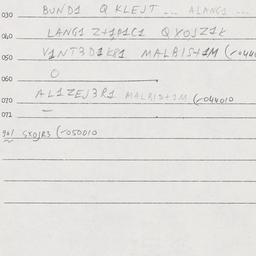 030 BUND1 Q KLEJT ... ALANG1 ...
040 LANG1 Z+1P1C1 Q XOJZ1K
050 V1NT3D1K81 MALBIS+1M (-044
060 O
070 AL1ZEJ3R1 MALBIS+1M (-044010
071 —
90/ SXOJR3 (-050010